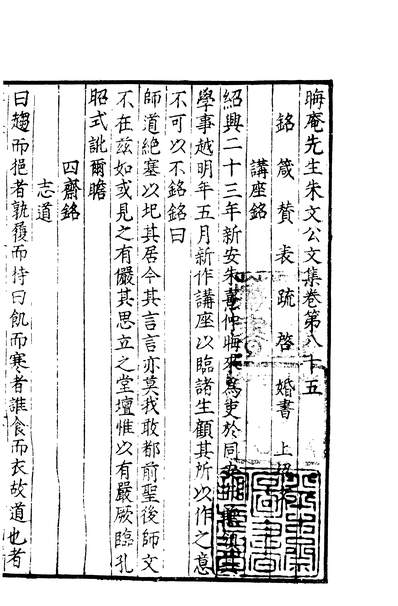 晦庵先生朱文公文集卷第八十五
銘 箴 賛 表 疏 啓 婚書 上
講座銘
紹興二十三年新安朱熹仲晦來爲吏於同
學事越明年五月新作講座以臨諸生顧其所以作之意
不可以不銘銘曰
師道絶塞以圯其居今其言言亦莫我敢都前聖後師文
不在茲如或見之有儼其思立之堂壇惟以有嚴厥臨孔
昭式訛爾瞻
四齋銘
志道
曰趨而挹者孰履而持曰飢而寒者誰食而衣故道也者